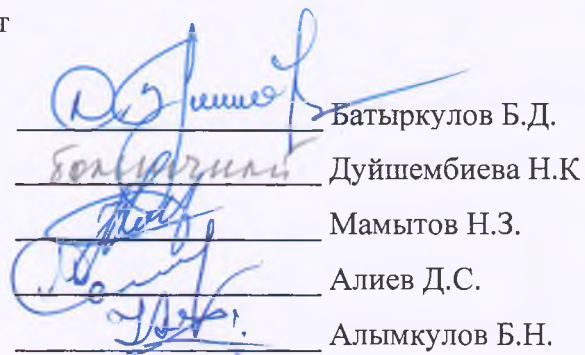 т
Батыркулов Б.Д.
больничный Дуйшембиева Н.К
Мамытов Н.З.
Алиев Д.С.
Алымкулов Б.Н.